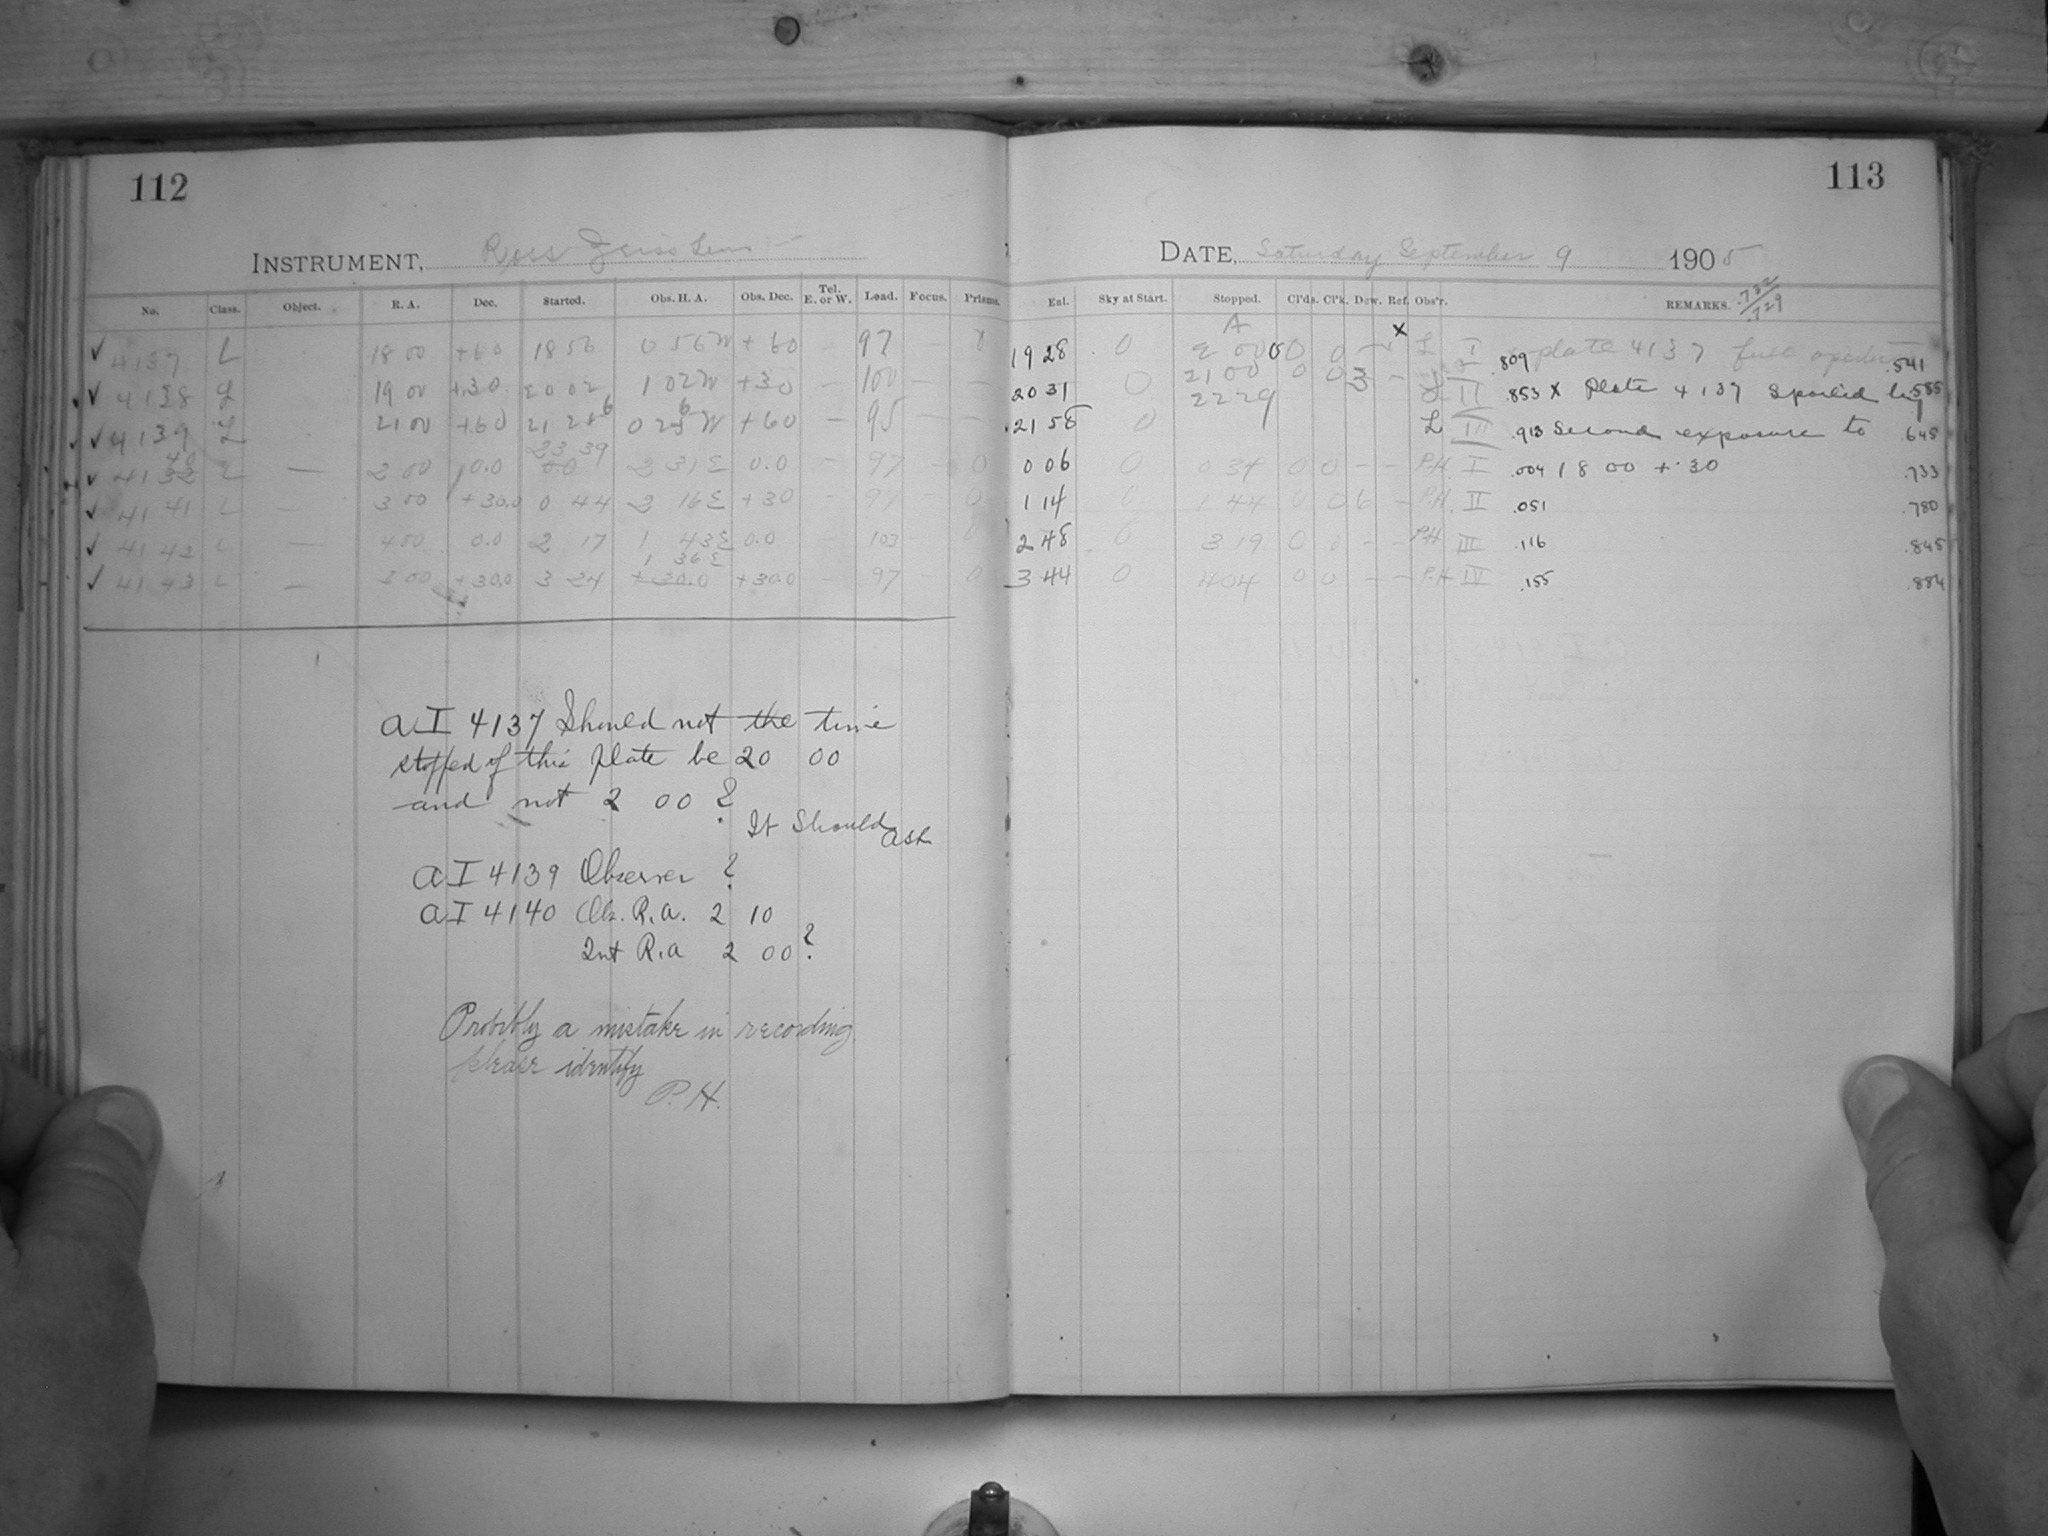 112
113
INSTRUMENT, Ross Zeiss Lens
DATE, Saturday September 9 1905
No. Class. Object. R. A. Dec. Started. Obs. H. A. Obs. Dec. Tel. E. or W. Load. Focus. Prisms. Ent. Sky at Start. Stopped. Cl'ds. Cl'k. Dew. Ref. Obs'r. REMARKS. .732 .729
✓ 4137 L 18 00 +60 18 56 0 56 W + 60 — 97 — 19 28 0 2 00 0 0 x L I .809 plate 4137 full .541
✓ 4138 L 19 00 +30 20 02 1 02 W +30 — 100 — — 20 31 0 21 00 0 0 3 — L II .853 x Plate 4137 Spoiled by .585
✓ 4139 L 21 00 +60 21 28 W +60 — 95 — — 21 58 0 22 29 L III .913 Second exposure to .645
✓ 4140 L — 2 00 0.0 23 39 2 31 E 0.0 — 97 — 0 0 06 0 0 34 0 0 — — P.H. I .004 18 00 + 30 .733
✓ 4141 L — 3 00 +30.0 0 44 2 16 E +30 — 97 0 1 14 0 1 44 0 0 6 — P.H. II .051 .780
✓ 4142 L — 4 00 0.0 2 17 1 43 E 0.0 — 103 0 2 48 0 3 19 0 0 — — P.H III .116 .845
✓ 4143 L — 5 00 +30.0 3 24 1 36 E +30.0 — 97 — 0 3 44 0 4 04 0 0 — — P.H IV .155 .884
a I 4137 Should not the time
stopped of this plate be 20 00
and not 2 00 ?
It Should
ask
a I 4139 Observer ?
a I 4140 Ob. R.a. 2 10
Int R.a 2 00 ?
Probibly a mistake in recording
please identify
P. H.